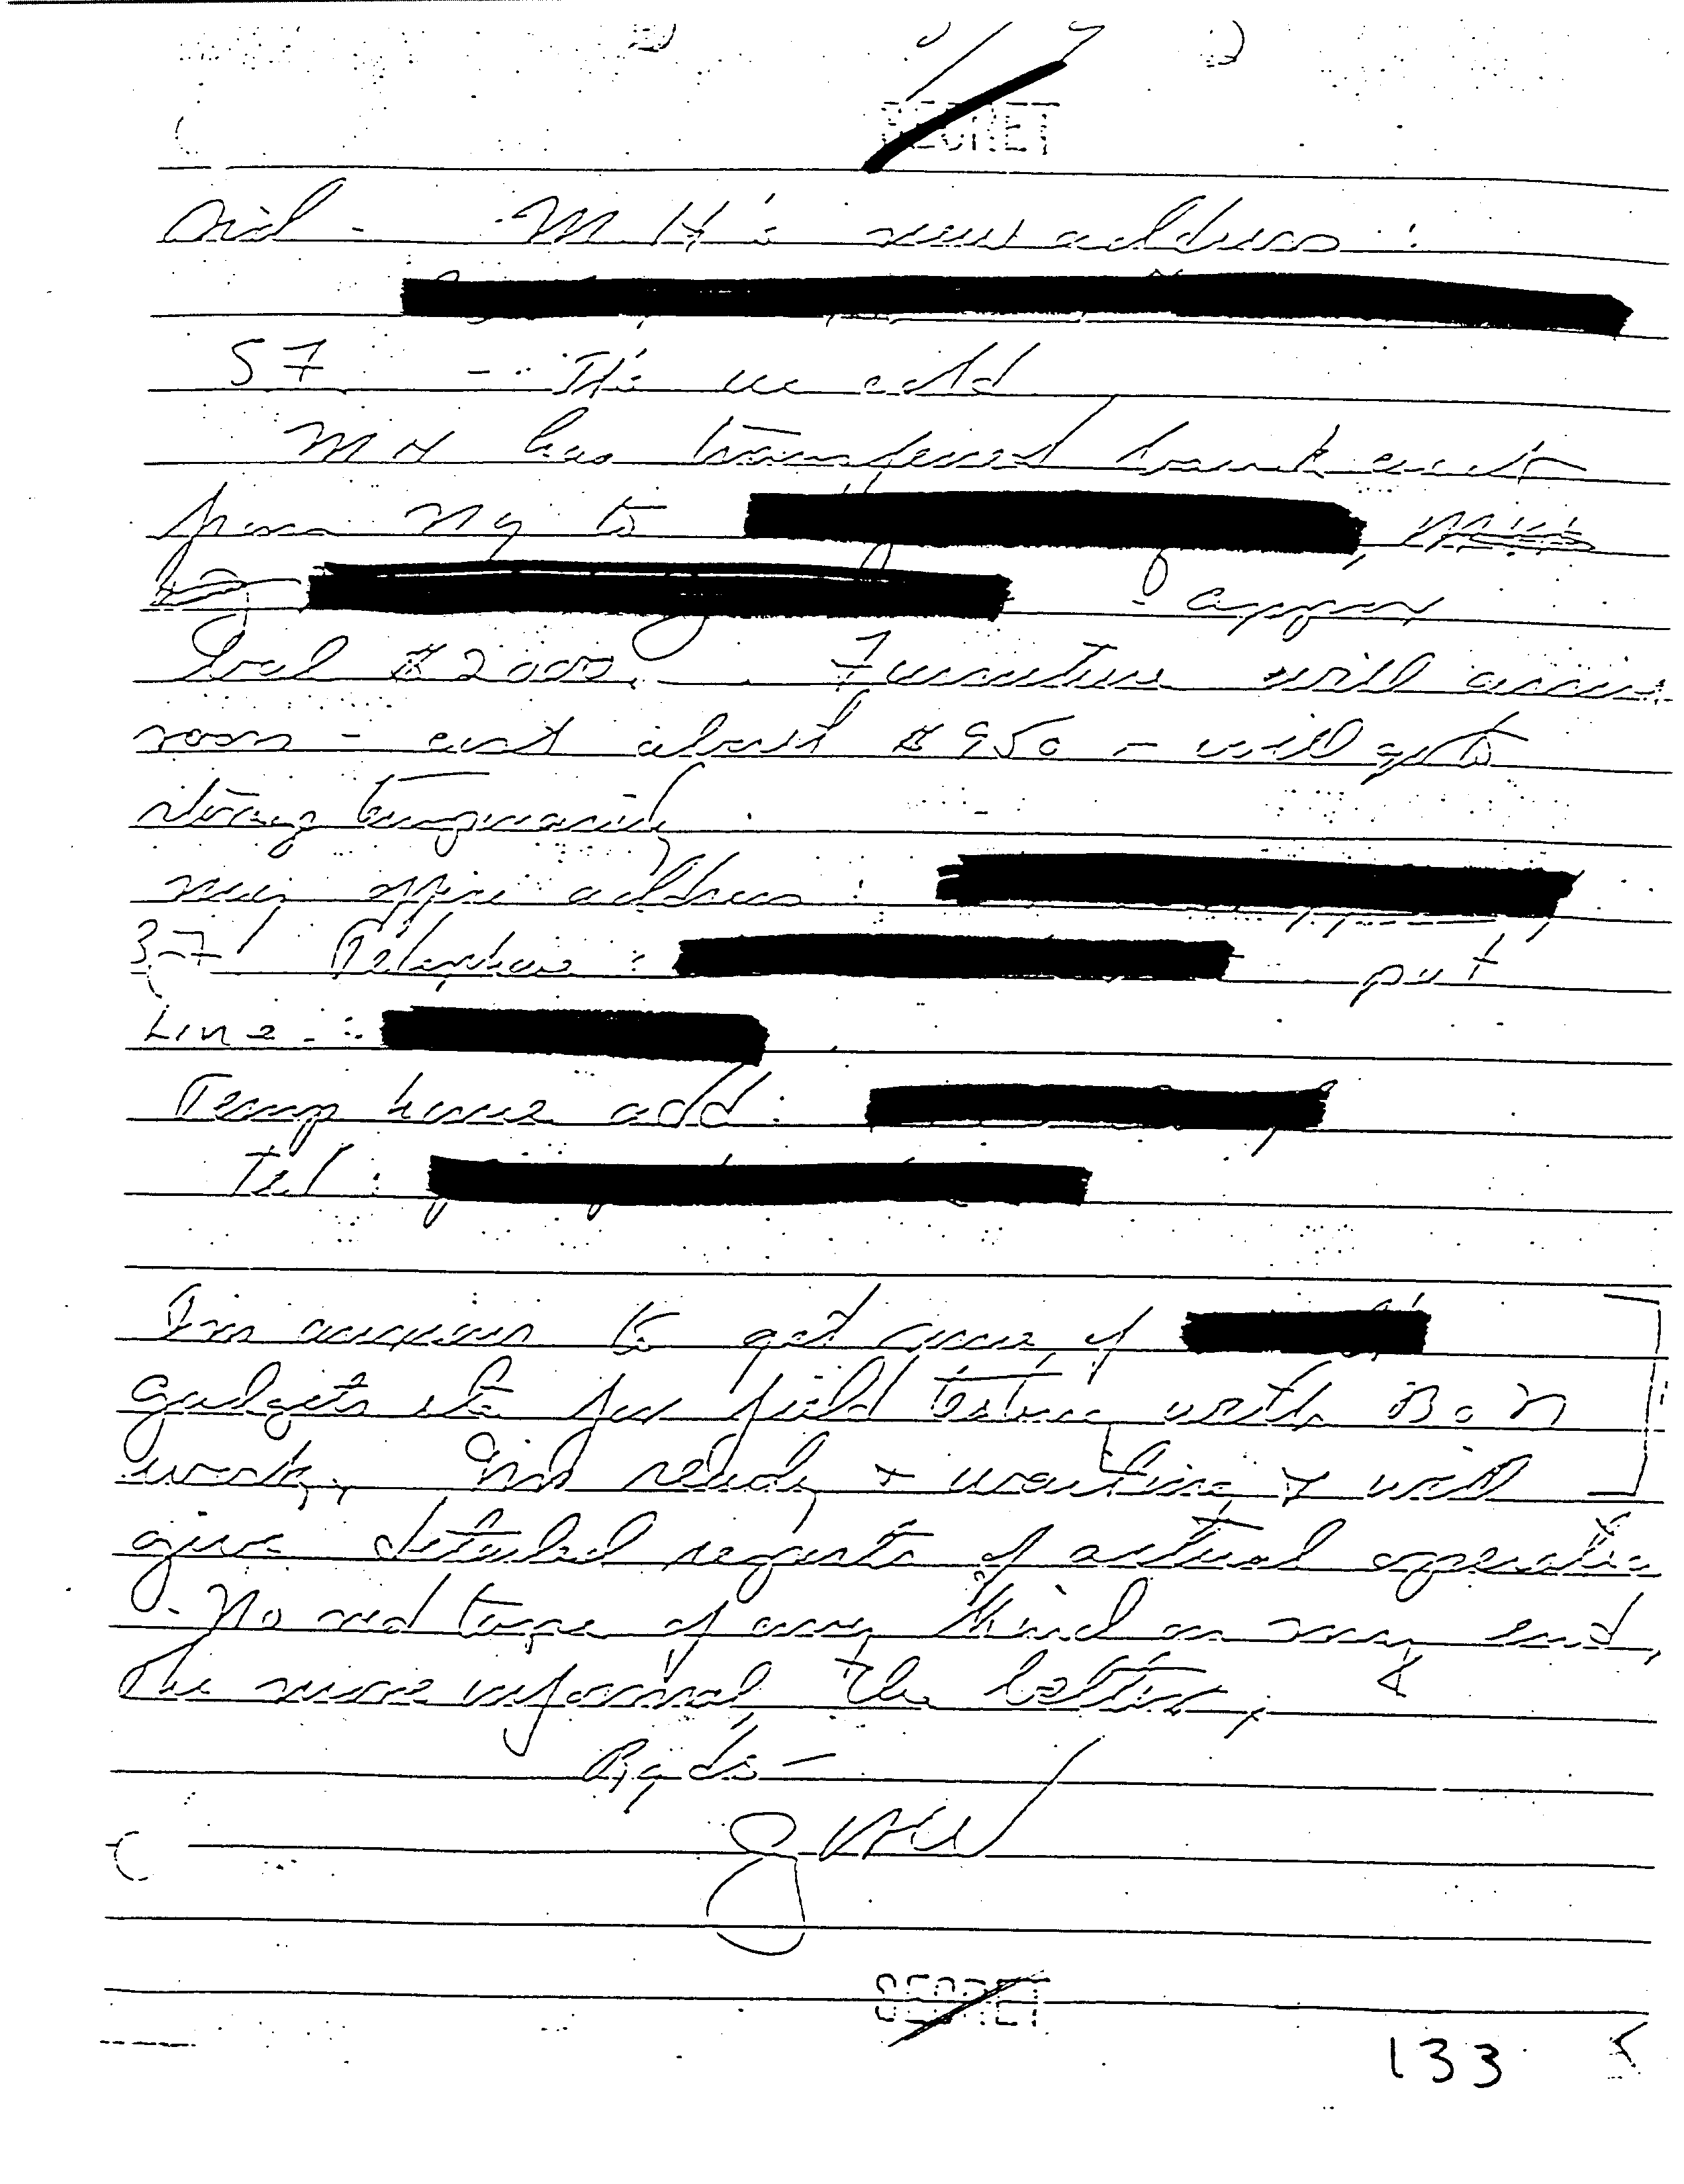 SECRET
Sid - M H's new address :
57 - It's cold
M H has transferred bank acct
from NY to
- approx
bal $2000. Furniture will arrive
soon - cost about $950 - will go to
storage temporarily
new office address :
3-7! Telephone : put
Line :
Temp home add :
Tel :
I'm anxious to get some of
gadgets etc for field testing with B o N
work. Am ready & waiting & will
give detailed reports of actual operation
- No red tape of any kind on my end.
The more informal the better.
Rgds -
GHW
SECRET
133